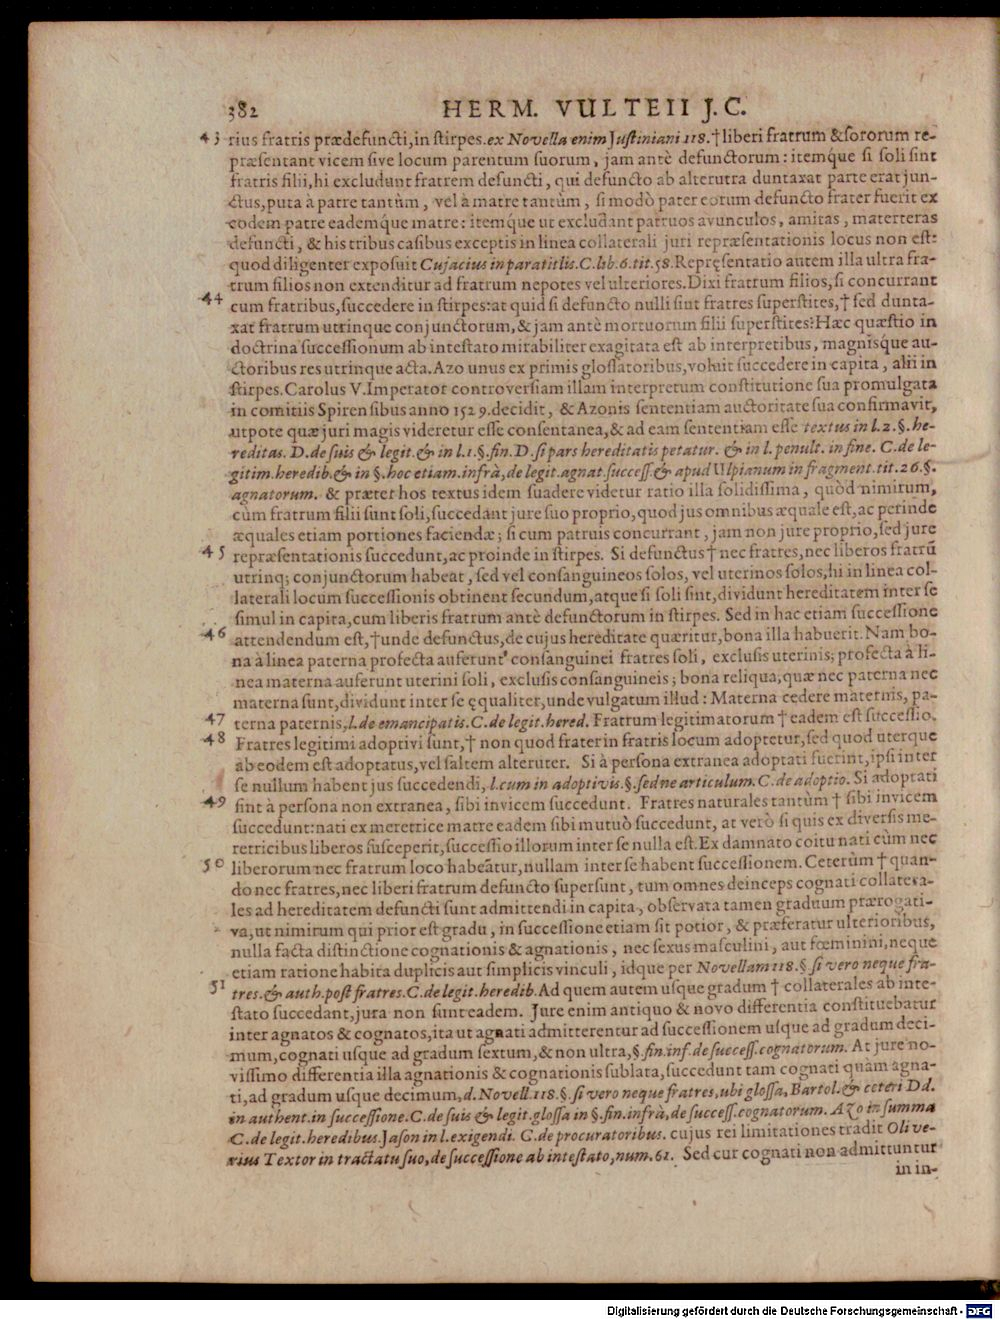 382 HERM. VULTEII J.C.
43 rius fratris prædefuncti,in ſtirpes.ex Novella enim Juſtiniani 118.†liberi fratrum &ſororum re-
præſentant vicem ſive locum parentum ſuorum, jam antè defunctorum: itemq́ue ſi ſoli ſint
fratris filii,hi excludunt fratrem defuncti, qui defuncto ab alterutra duntaxat parte erat jun-
ctus,puta à patre tantùm, vel à matre tantùm, ſi modò pater eorum defuncto frater fuerit ex
eodem patre eademq́ue matre: itemq́ue ut excludant patruos avunculos, amitas, materteras
defuncti, & his tribus caſibus exceptis in linea collaterali juri repræſentationis locus non eſt:
quod diligenter expoſuit Cujacius in paratitlis.C.lib.6.tit.58.Repręſentatio autem illa ultra fra-
trum filios non extenditur ad fratrum nepotes vel ulteriores.Dixi fratrum filios,ſi concurrant
44 cum fratribus,ſuccedere in ſtirpes:at quid ſi defuncto nulli ſint fratres ſuperſtites,† ſed dunta-
xat fratrum utrinque conjunctorum,& jam antè mortuorum filii ſuperſtites?Hæc quæſtio in
doctrina ſucceſſionum ab inteſtato mirabiliter exagitata eſt ab interpretibus, magnisq́ue au-
ctoribus res utrinque acta.Azo unus ex primis gloſſatoribus,voluit ſuccedere in capita, alii in
ſtirpes.Carolus V.Imperator controverſiam illam interpretum conſtitutione ſua promulgata
in comitiis Spirenſibus anno 1529.decidit, & Azonis ſententiam auctoritate ſua confirmavit,
utpote quæ juri magis videretur eſſe conſentanea,& ad eam ſententiam eſſe textus in l.2.§.he-
reditas. D.de ſuis & legit.& in l.1.§.fin.D.ſi pars hereditatis petatur. & in l.penult. in fine. C.de le-
gitim.heredib.& in §.hoc etiam.infrà,de legit.agnat.ſucceſſ.& apud Ulpianum in fragment.tit.26.§.
agnatorum. & præter hos textus idem ſuadere videtur ratio illa ſolidiſſima, quòd nimirum,
cùm fratrum filii ſunt ſoli,ſuccedant jure ſuo proprio,quod jus omnibus æquale eſt,ac perinde
æquales etiam portiones faciendæ; ſi cum patruis concurrant, jam non jure proprio,ſed jure
45 repræſentationis ſuccedunt,ac proinde in ſtirpes. Si defunctus† nec fratres,nec liberos fratrū
utrinq; conjunctorum habeat, ſed vel conſanguineos ſolos, vel uterinos ſolos,hi in linea col-
laterali locum ſucceſſionis obtinent ſecundum,atque ſi ſoli ſint,dividunt hereditatem inter ſe
ſimul in capita,cum liberis fratrum antè defunctorum in ſtirpes. Sed in hac etiam ſucceſſione
46 attendendum eſt,†unde defunctus,de cujus hereditate quæritur,bona illa habuerit.Nam bo-
na à linea paterna profecta auferunt conſanguinei fratres ſoli, excluſis uterinis; profecta à li-
nea materna auferunt uterini ſoli, excluſis conſanguineis; bona reliqua,quæ nec paterna nec
materna ſunt,dividunt inter ſe ęqualiter,unde vulgatum illud: Materna cedere maternis, pa-
47 terna paternis,l.de emancipatis.C.de legit.hered. Fratrum legitimatorum † eadem eſt ſucceſſio.
48 Fratres legitimi adoptivi ſunt,† non quod frater in fratris locum adoptetur,ſed quod uterque
ab eodem eſt adoptatus,vel ſaltem alteruter. Si à perſona extranea adoptati fuerint,ipſi inter
ſe nullum habent jus ſuccedendi, l.cum in adoptivis.§.ſed ne articulum.C.de adoptio. Si adoptati
49 ſint à perſona non extranea, ſibi invicem ſuccedunt. Fratres naturales tantùm † ſibi invicem
ſuccedunt:nati ex meretrice matre eadem ſibi mutuò ſuccedunt, at verò ſi quis ex diverſis me-
retricibus liberos ſuſceperit,ſucceſſio illorum inter ſe nulla eſt.Ex damnato coitu nati cùm nec
50 liberorum nec fratrum loco habeātur,nullam inter ſe habent ſucceſſionem. Ceterùm † quan-
do nec fratres,nec liberi fratrum defuncto ſuperſunt, tum omnes deinceps cognati collatera-
les ad hereditatem defuncti ſunt admittendi in capita, obſervata tamen graduum prærogati-
va,ut nimirum qui prior eſt gradu, in ſucceſſione etiam ſit potior, & præferatur ulterioribus,
nulla facta diſtinctione cognationis & agnationis, nec ſexus maſculini, aut fœminini,neque
etiam ratione habita duplicis aut ſimplicis vinculi, idque per Novellam 118.§.ſi vero neque fra-
51 tres.& auth.poſt fratres.C.de legit.heredib.Ad quem autem uſque gradum † collaterales ab inte-
ſtato ſuccedant,jura non ſunt eadem. Jure enim antiquo & novo differentia conſtituebatur
inter agnatos & cognatos,ita ut agnati admitterentur ad ſucceſſionem uſque ad gradum deci-
mum,cognati uſque ad gradum ſextum,& non ultra,§.fin.inf.de ſucceſſ.cognatorum. At jure no-
viſſimo differentia illa agnationis & cognationis ſublata,ſuccedunt tam cognati quàm agna-
ti,ad gradum uſque decimum,d.Novell.118.§.ſi vero neque fratres,ubi gloſſa, Bartol.& ceteri Dd.
in authent.in ſucceſſione.C.de ſuis & legit.gloſſa in §.fin.infrà,de ſucceſſ.cognatorum. Azo in ſumma
C.de legit.heredibus.Jaſon in l.exigendi. C.de procuratoribus. cujus rei limitationes tradit Olive-
rius Textor in tractatu ſuo,de ſucceſſione ab inteſtato,num.61. Sed cur cognati non admittuntur
in in-
Digitalisierung gefördert durch die Deutsche Forschungsgemeinschaft - DFG